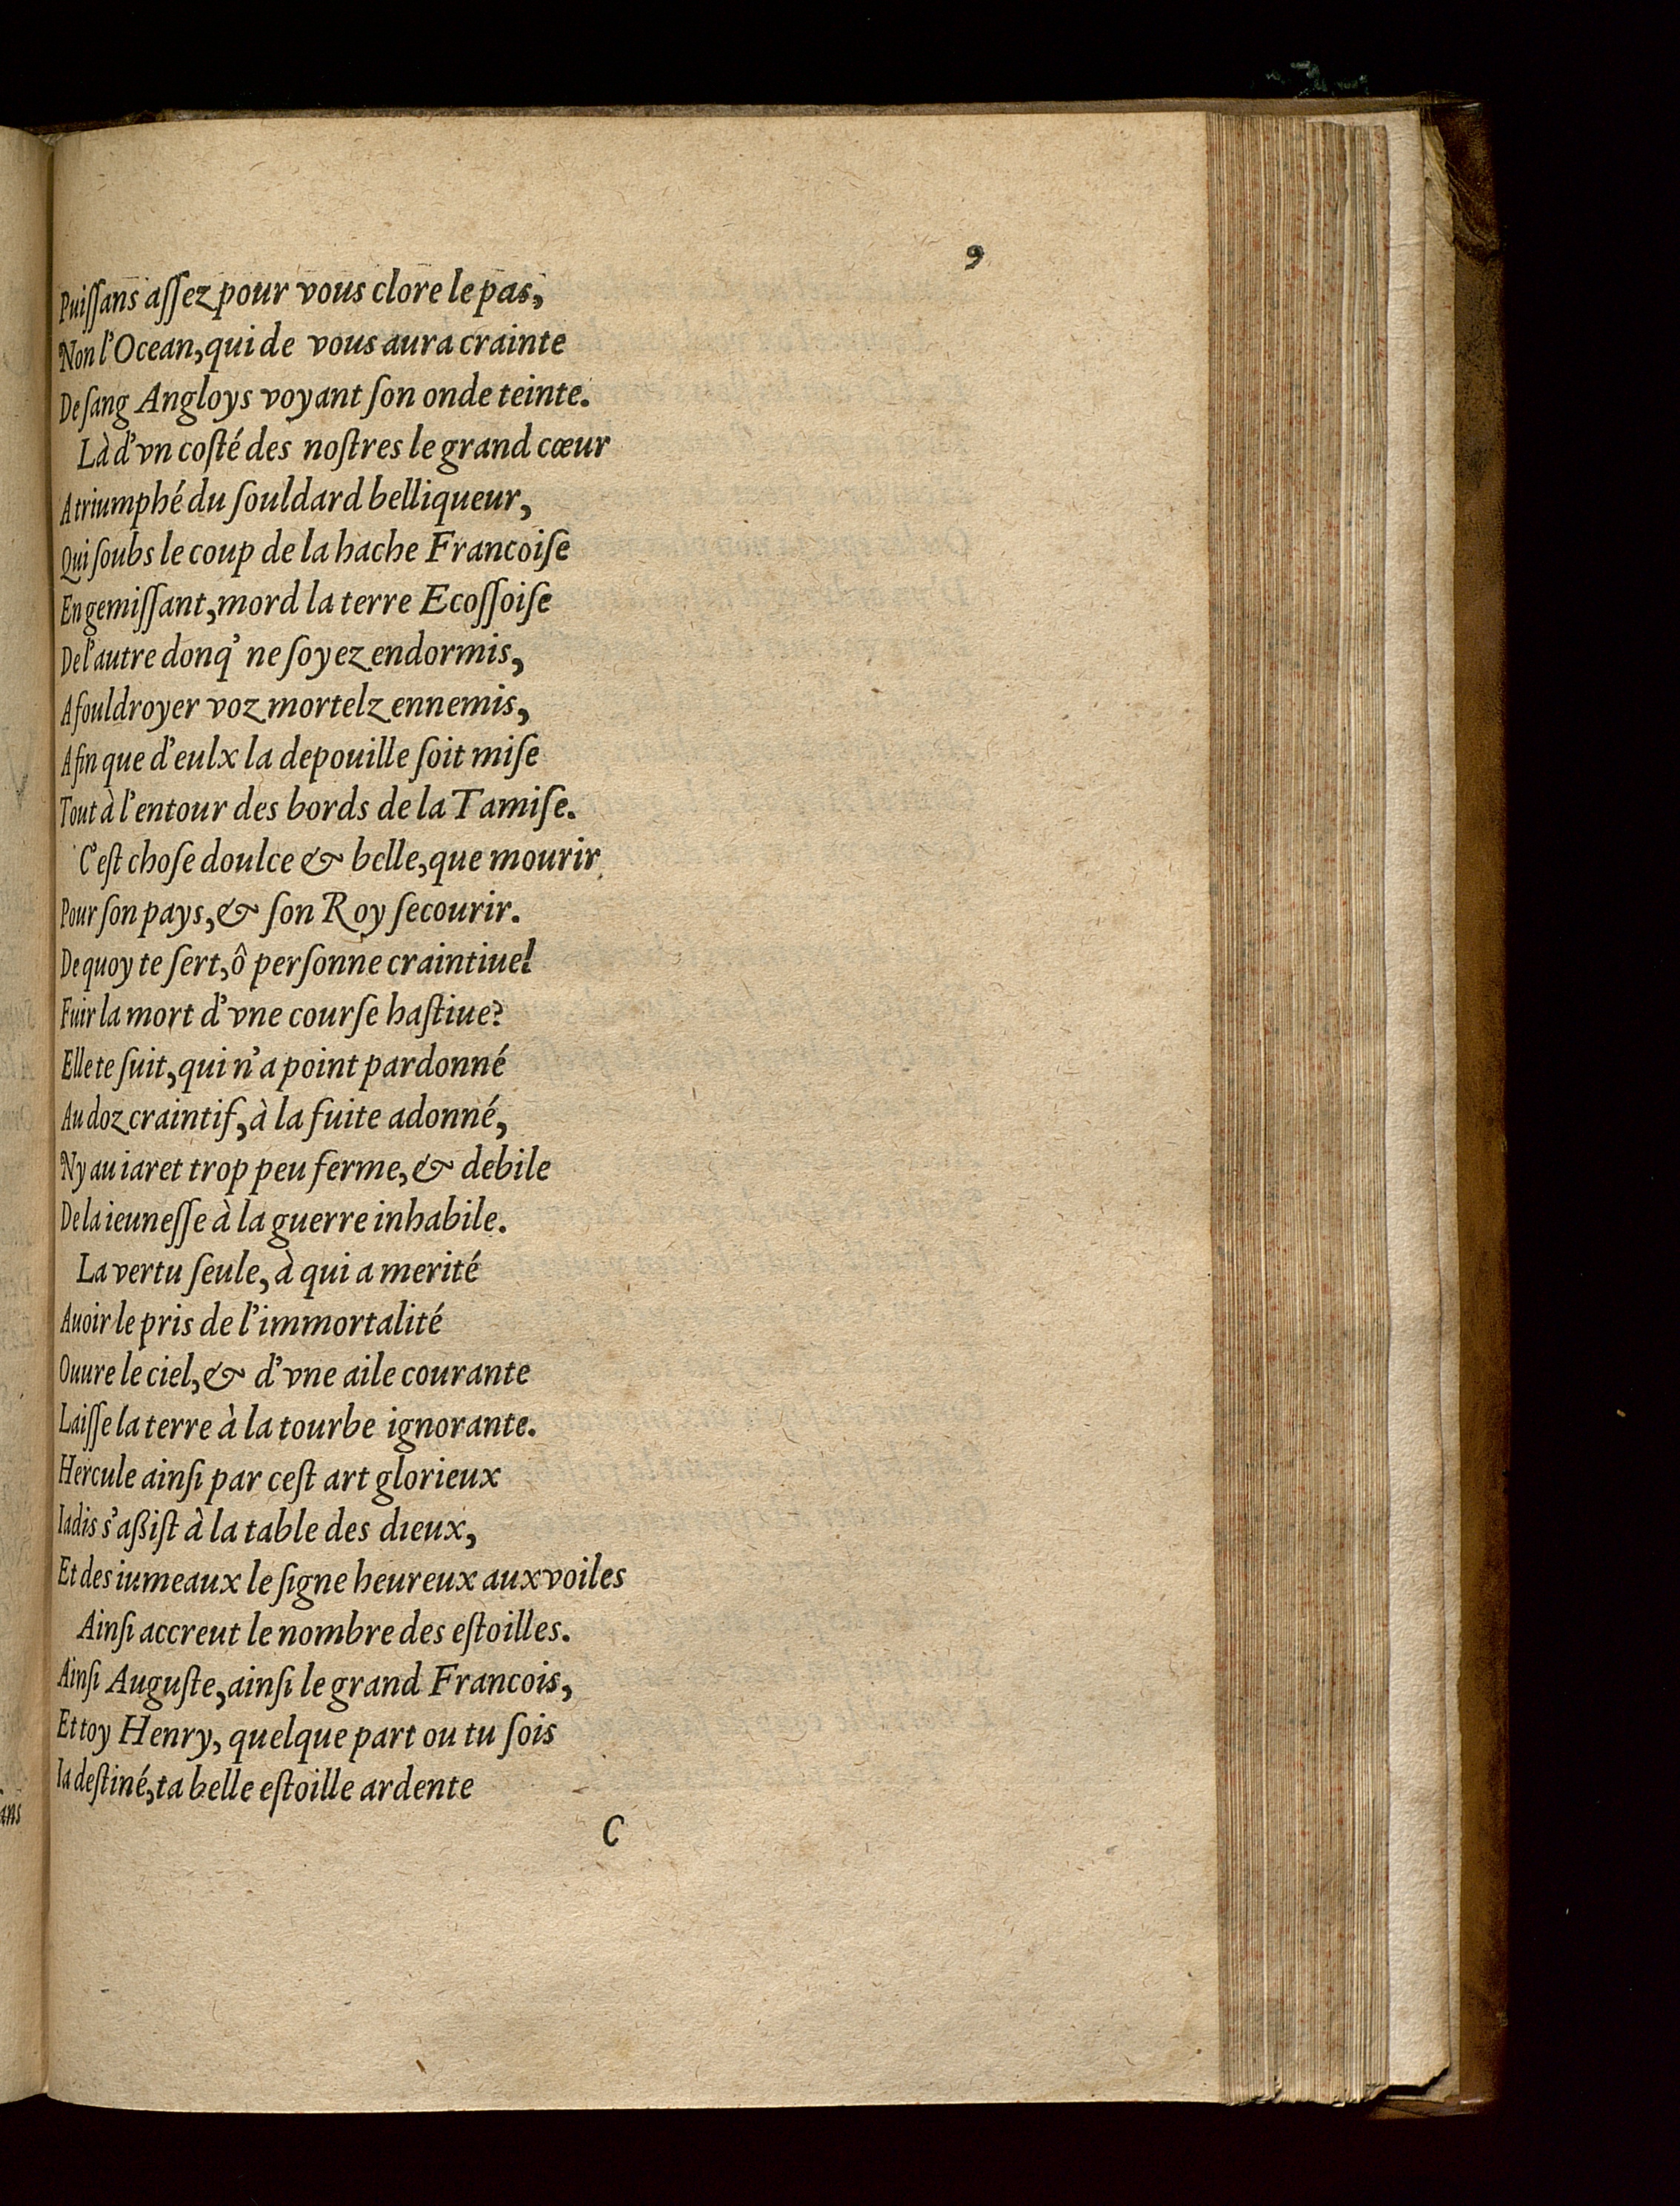 9
Puiſſans aſſez pour vous clore le pas,
Non l'Ocean, qui de vous aura crainte
De ſang Angloys voyant ſon onde teinte.
Là d'vn coſté des noſtres le grand cœur
A triumphé du ſouldard belliqueur,
Qui ſoubs le coup de la hache Francoiſe
En gemiſſant, mord la terre Ecoſſoiſe
De l'autre donq' ne ſoyez endormis,
A fouldroyer voz mortelz ennemis,
Afin que d'eulx la depouille ſoit miſe
Tout à l'entour des bords de la Tamiſe.
C'eſt choſe doulce & belle, que mourir
Pour ſon pays, & ſon Roy ſecourir.
De quoy te ſert, ô perſonne craintiue!
Fuir la mort d'vne courſe haſtiue?
Elle te ſuit, qui n'a point pardonné
Au doz craintif, à la fuite adonné,
Ny au iaret trop peu ferme, & debile
De la ieuneſſe à la guerre inhabile.
La vertu ſeule, à qui a merité
Auoir le pris de l'immortalité
Ouure le ciel, & d'vne aile courante
Laiſſe la terre à la tourbe ignorante.
Hercule ainſi par ceſt art glorieux
Iadis s'aßiſt à la table des dieux,
Et des iumeaux le ſigne heureux aux voiles
Ainſi accreut le nombre des eſtoilles.
Ainſi Auguſte, ainſi le grand Francois,
Et toy Henry, quelque part ou tu ſois
Ia deſtiné, ta belle eſtoille ardente
C